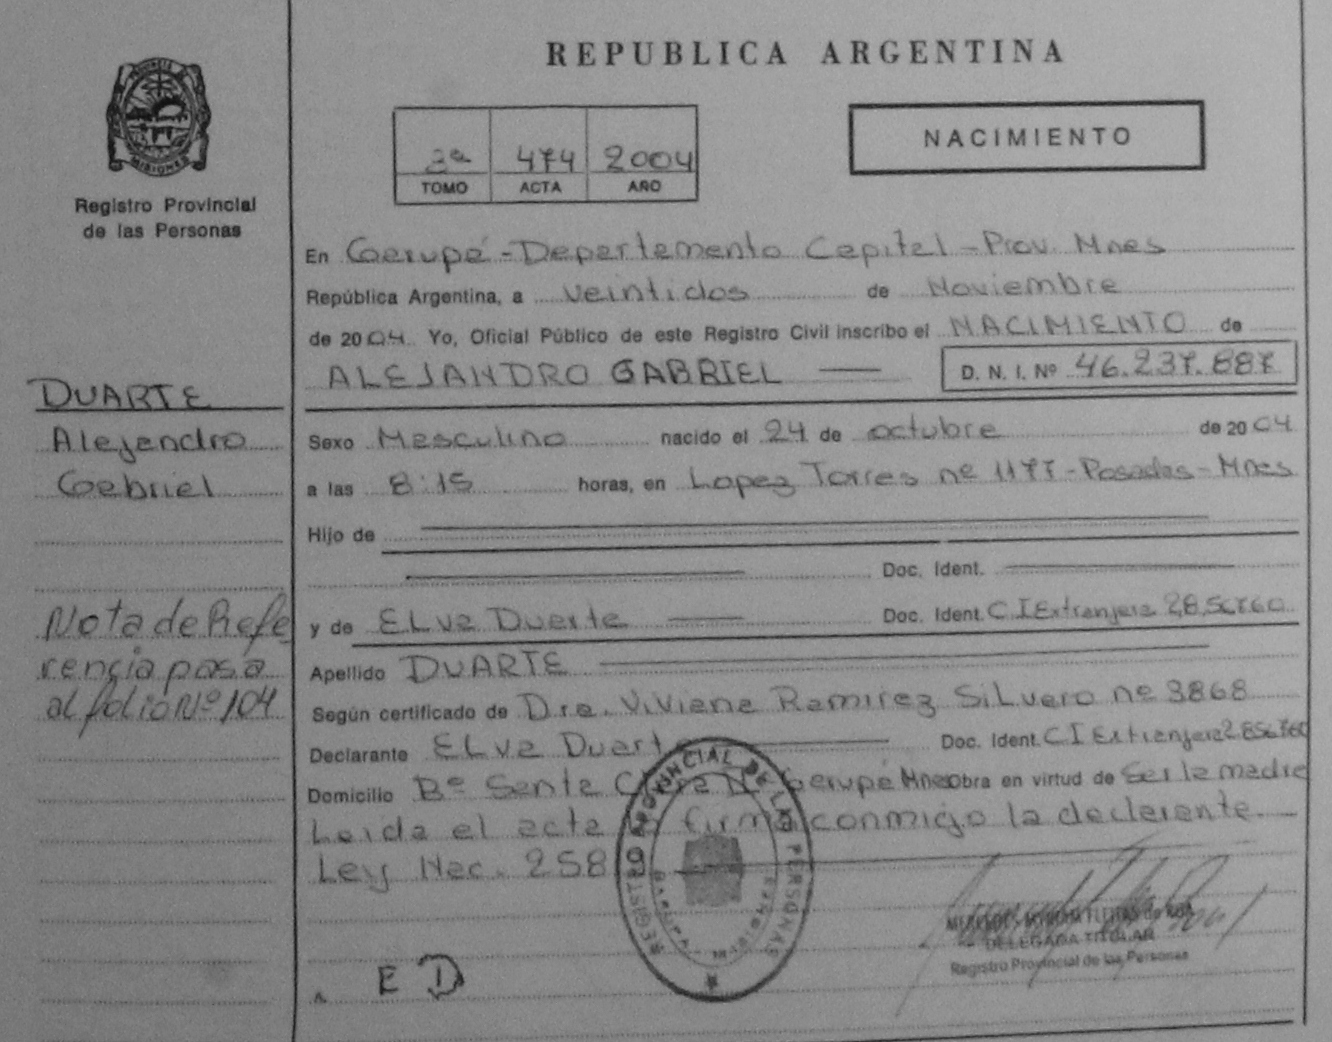 REPUBLICA ARGENTINA
PROVINCIA DE
MISIONES
Registro Provincial
de las Personas
2ª 474 2004
TOMO ACTA AÑO
NACIMIENTO
En Garupá - Departamento Capital - Prov. Mnes
República Argentina, a veintidos de Noviembre
de 2004 Yo, Oficial Público de este Registro Civil inscribo el NACIMIENTO de
ALEJANDRO GABRIEL D. N. I. Nº 46.237.887
DUARTE
Alejandro
Gabriel
Sexo Masculino nacido el 24 de octubre de 2004
a las 8:15 horas, en Lopez Torres nº 1177 - Posadas - Mnes
Hijo de
Doc. Ident.
Nota de Refe
rencia pasa
al folio Nº 104
y de ELva Duarte Doc. Ident. C I Extranjera
Apellido DUARTE
Según certificado de Dra. Viviana Ramirez SiLvero nº 3868
Declarante ELva Duarte Doc. Ident. C I Extranjera
Domicilio Bº Santa Garupá Mnes obra en virtud de Ser la madre
Leida el acta la firma conmigo la declarante.
Ley Nac. 258
E D
REGISTRO PROVINCIAL DE LAS PERSONAS
DELEGADA TITULAR
Registro Provincial de las Personas